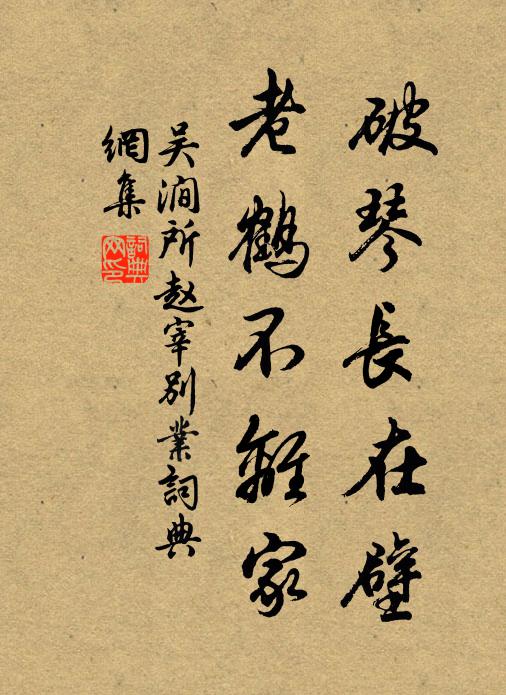 破琴長在壁
老鶴不離家
吴澗所赵宰别業詞典
網集
詞典网印